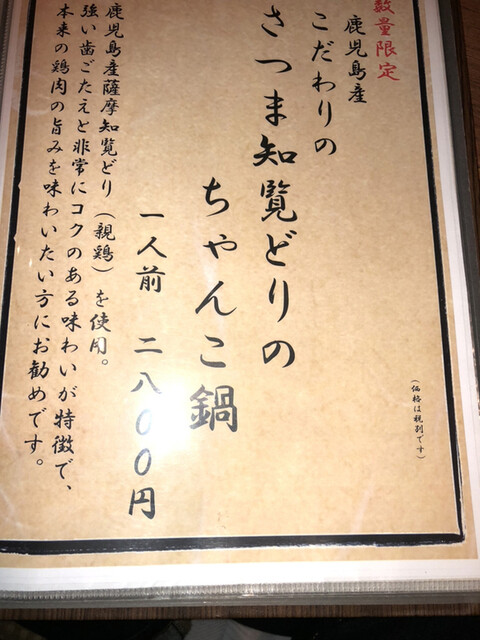 数量限定
鹿児島産
こだわりの
さつま知覧どりの
ちゃんこ鍋
一人前 二八〇〇円
鹿児島産薩摩知覧どり（親鶏）を使用。
強い歯ごたえと非常にコクのある味わいが特徴で、
本来の鶏肉の旨みを味わいたい方にお勧めです。
（価格は税別です）